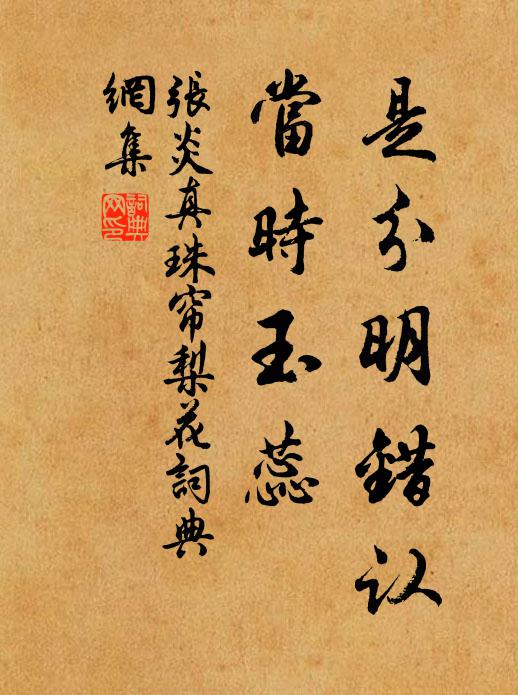 是分明錯认
當時玉蕊
張炎真珠帘梨花詞典
網集
詞典网印